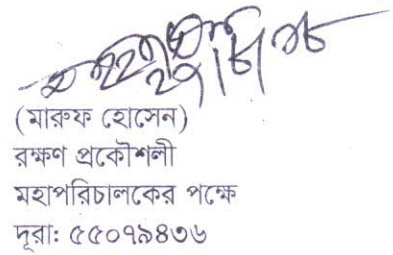 (মারুফ হোসেন)
রক্ষণ প্রকৌশলী
মহাপরিচালকের পক্ষে
দূরা: ৫৫০৭৯৪৩৬